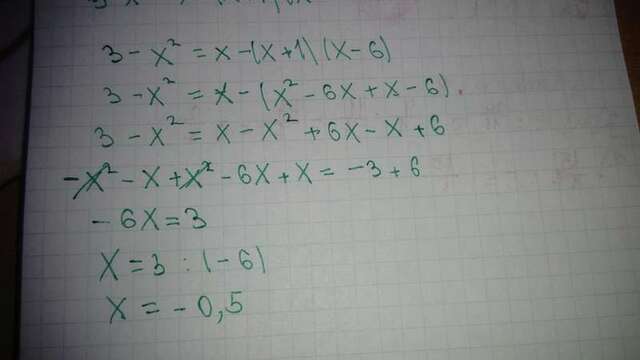 3 - x² = x - (x+1)(x-6)
3 - x² = x - (x² - 6x + x - 6).
3 - x² = x - x² + 6x - x + 6
-x² - x + x² - 6x + x = -3 + 6
-6x = 3
x = 3 : (-6)
x = -0,5